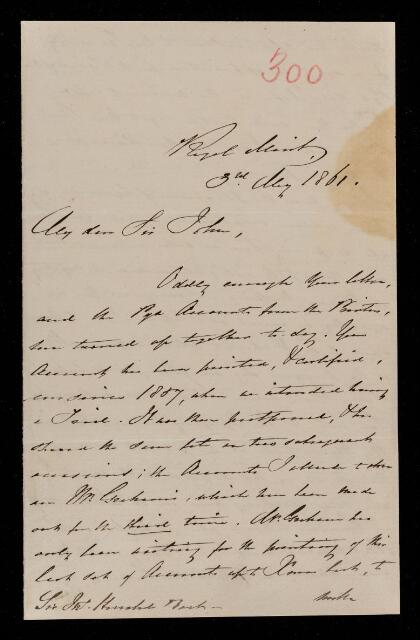 300
Royal Mint,
3rd May 1861.
My dear Sir John,
Oddly enough Your letter,
and the Pyx Accounts from the Printer,
have turned up together to day. Your
Account, has been printed, & certified,
ever since 1857, when we intended having
a Trial. It was then postponed, & has
shared the same fate on two subsequent
occasions; the Accounts I allude to
are Mr Graham's, which have been made
out for the third time. Mr Graham has
only been waiting for the printing of this
last set of Accounts up to Xmas last, to
Sir Jno. Herschel Bart - make